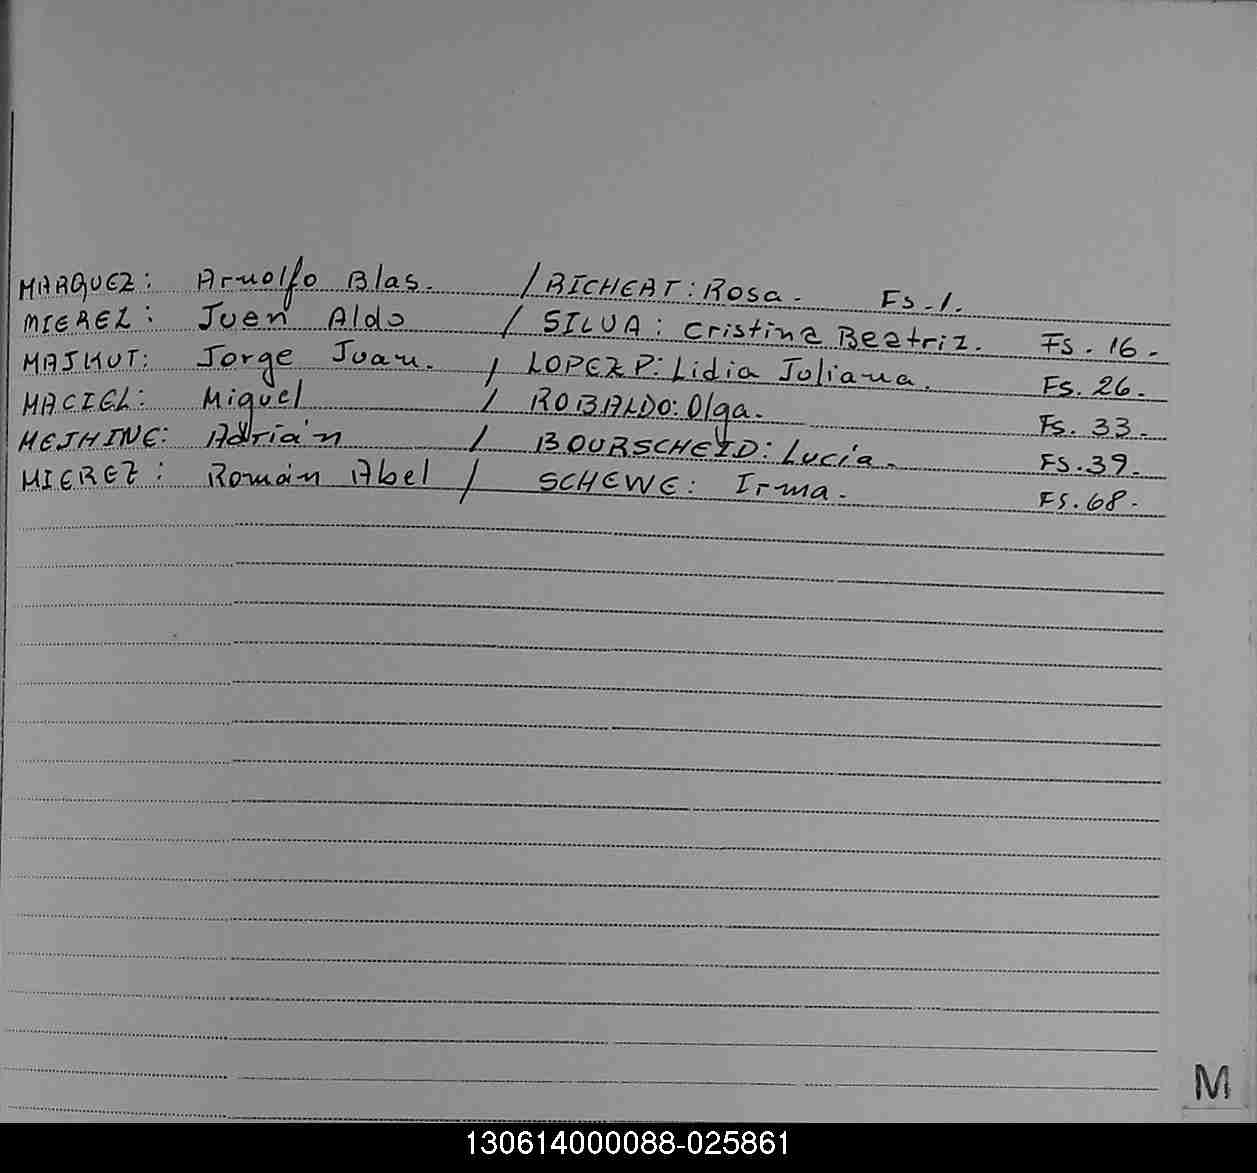 MARQUEZ: Arnolfo Blas. / RICHERT: Rosa. Fs. 1.
MIEREZ: Juan Aldo / SILVA: Cristina Beatriz. Fs. 16.
MAJKUT: Jorge Juan. / LOPEZ P: Lidia Juliana. Fs. 26.
MACIEL: Miguel / ROBALDO: Olga. Fs. 33.
Adrián / BOURSCHEID: Lucía. Fs. 39.
MIEREZ: Román Abel / SCHEWE: Irma. Fs. 68.
M
130614000088-025861